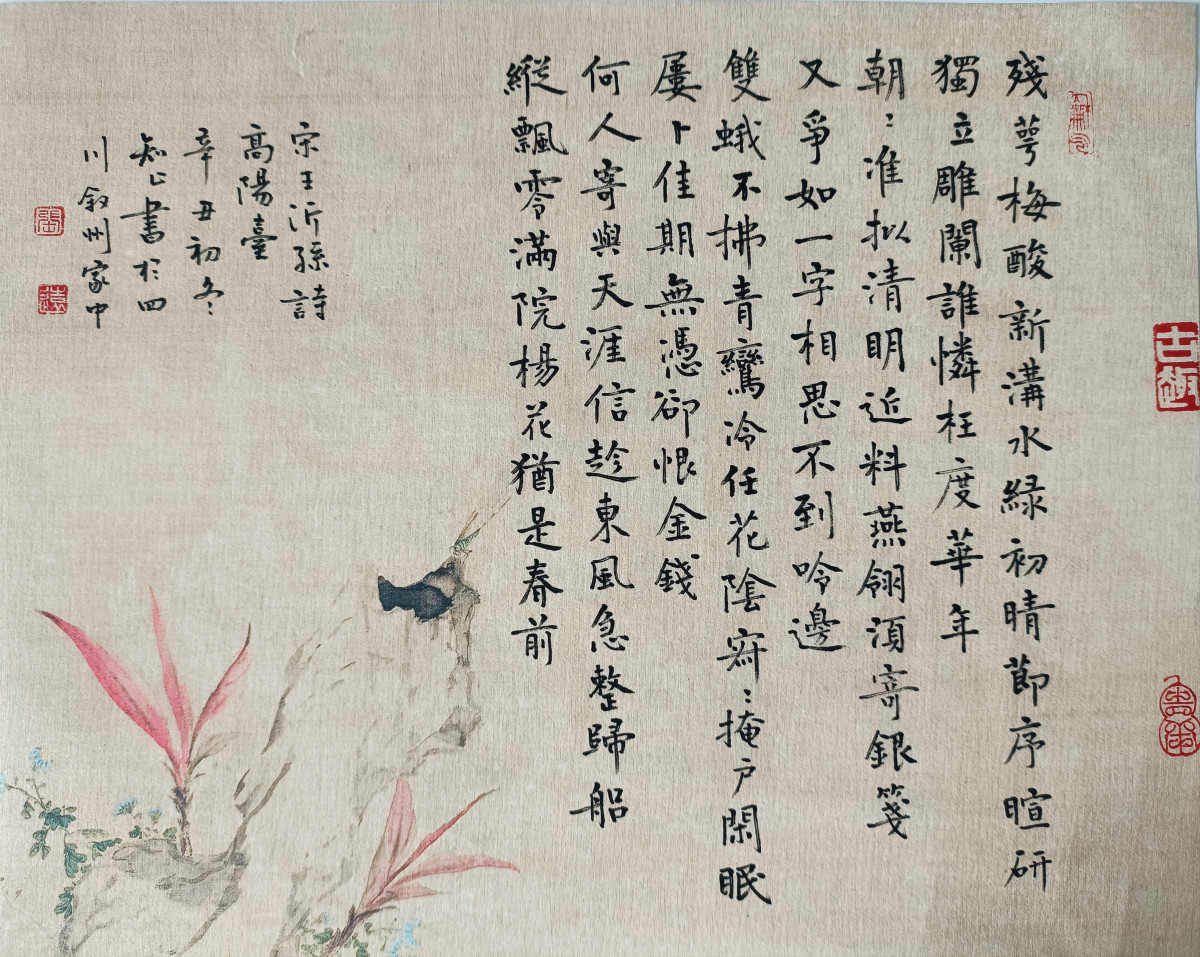 殘萼梅酸新溝水綠初晴節序暄妍
獨立雕闌誰憐枉度華年
朝〻准拟清明近料燕翎須寄銀箋
又爭如一字相思不到吟邊
雙蛾不拂青鸞冷任花陰寂〻掩户閑眠
屢卜佳期無憑卻恨金錢
何人寄與天涯信趁東風急整歸船
縱飄零滿院楊花猶是春前
宋王沂孫詩
高陽臺
辛丑初冬
書於四
川叙州家中
古趣